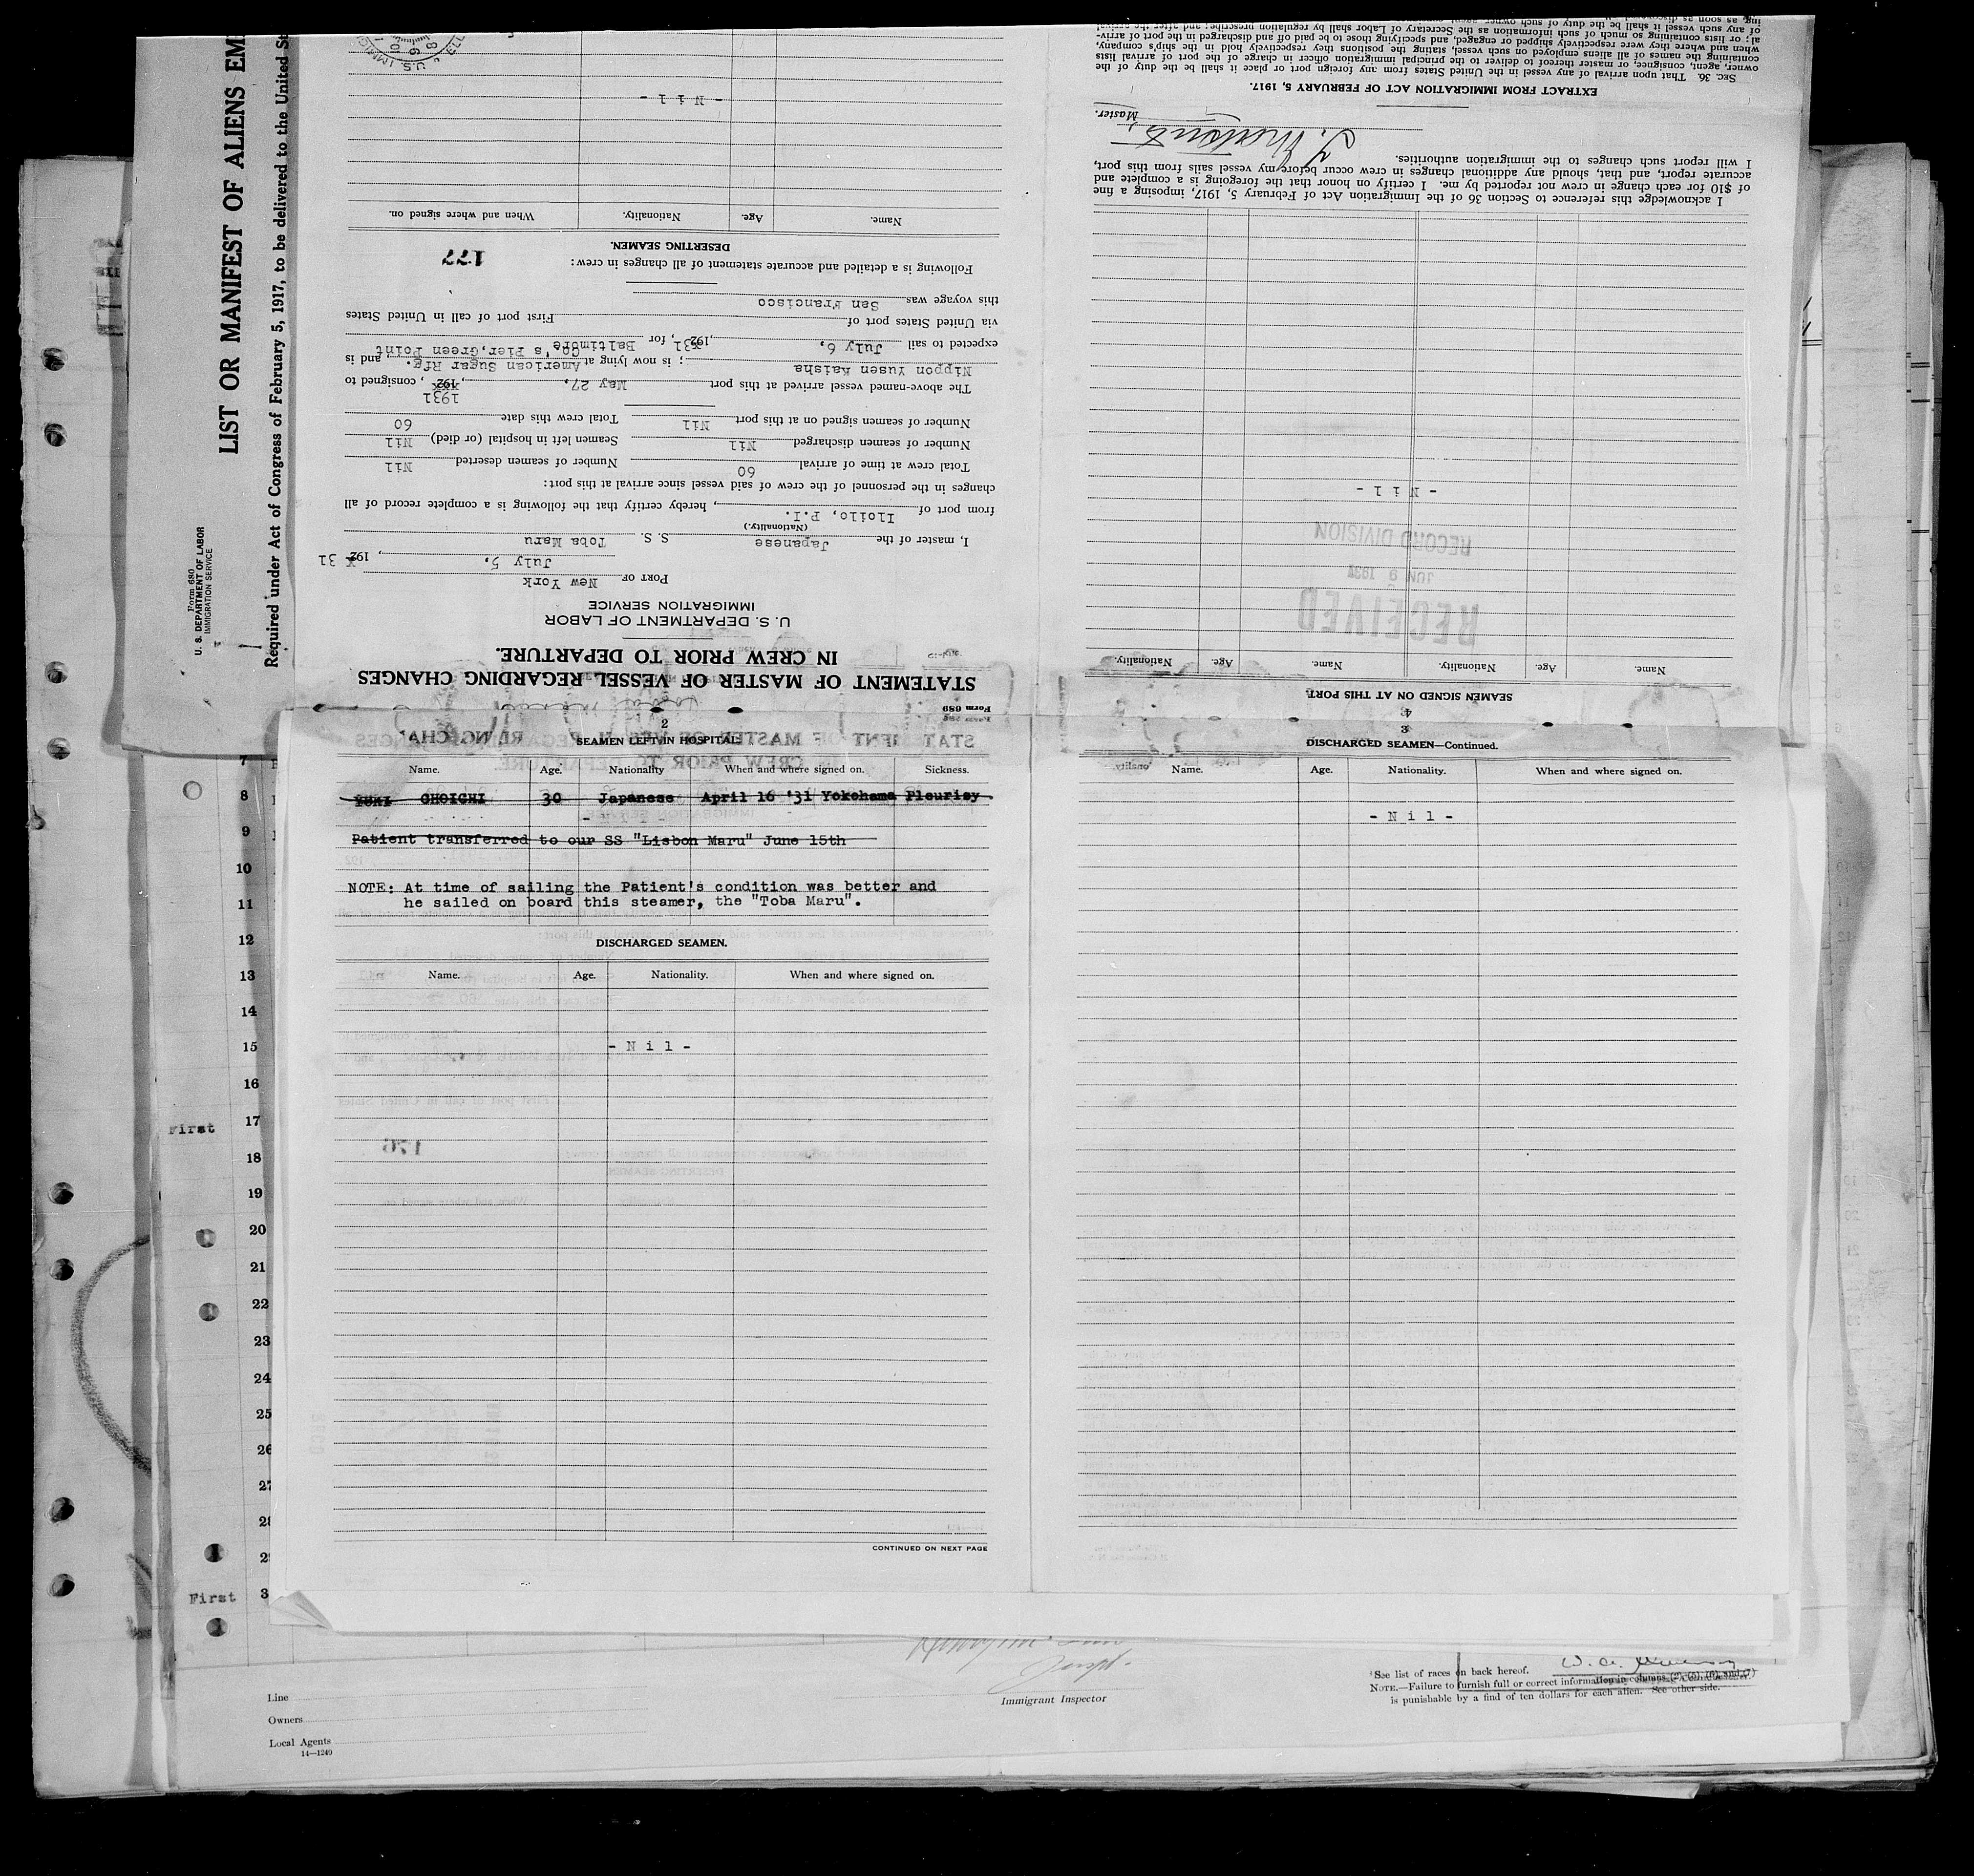 LIST OR MANIFEST OF ALIENS EM
Required under Act of Congress of February 5, 1917, to be delivered to the United St
Form 680
U. S. DEPARTMENT OF LABOR
IMMIGRATION SERVICE
Form 689
STATEMENT OF MASTER OF VESSEL REGARDING CHANGES
IN CREW PRIOR TO DEPARTURE.
U. S. DEPARTMENT OF LABOR
IMMIGRATION SERVICE
PORT OF New York
July 5, 192 31
I, master of the Japanese S. S. Toba Maru
(Nationality.)
from port of Iloilo, P.I., hereby certify that the following is a complete record of all
changes in the personnel of the crew of said vessel since arrival at this port:
Total crew at time of arrival 60 Number of seamen deserted Nil
Number of seamen discharged Nil Seamen left in hospital (or died) Nil
Number of seamen signed on at this port Nil Total crew this date 60
1931
The above-named vessel arrived at this port May 27, 192 , consigned to
Nippon Yusen Kaisha ; is now lying at American Sugar Rfg. and is
Co's Pier, Green Point
expected to sail July 6, 192 31, for Baltimore
via United States port of First port of call in United States
this voyage was San Francisco
Following is a detailed and accurate statement of all changes in crew:
177
DESERTING SEAMEN.
Name. Age. Nationality. When and where signed on.
- N i l -
4
SEAMEN SIGNED ON AT THIS PORT.
Name. Age. Nationality. Name. Age. Nationality.
RECEIVED
JUN 9 1931
RECORD DIVISION
- N i l -
I acknowledge this reference to Section 36 of the Immigration Act of February 5, 1917, imposing a fine
of $10 for each change in crew not reported by me. I certify on honor that the foregoing is a complete and
accurate report, and that, should any additional changes in crew occur before my vessel sails from this port,
I will report such changes to the immigration authorities.
Master.
EXTRACT FROM IMMIGRATION ACT OF FEBRUARY 5, 1917.
Sec. 36. That upon arrival of any vessel in the United States from any foreign port or place it shall be the duty of the
owner, agent, consignee, or master thereof to deliver to the principal immigration officer in charge of the port of arrival lists
containing the names of all aliens employed on such vessel, stating the positions they respectively hold in the ship's company,
when and where they were respectively shipped or engaged, and specifying those to be paid off and discharged in the port of arriv-
al; or lists containing so much of such information as the Secretary of Labor shall by regulation prescribe; and after the arrival
of any such vessel it shall be the duty of such owner, agent,
2
SEAMEN LEFT IN HOSPITAL
Name. Age. Nationality When and where signed on. Sickness.
YUMI CHOICHI 30 Japanese April 16 '31 Yokohama Pleurisy
Patient transferred to our SS "Lisbon Maru" June 15th
NOTE: At time of sailing the Patient's condition was better and
he sailed on board this steamer, the "Toba Maru".
DISCHARGED SEAMEN.
Name. Age. Nationality. When and where signed on.
- N i l -
176
CONTINUED ON NEXT PAGE
3
DISCHARGED SEAMEN—Continued.
Name. Age. Nationality. When and where signed on.
- N i l -
7
8
9
10
11
12
13
14
15
16
17
First
18
19
20
21
22
23
24
25
26
27
First
Line
Owners
Local Agents
14—1240
Immigrant Inspector
See list of races on back hereof.
NOTE.—Failure to furnish full or correct information in columns (2), (5), (6), and (7)
is punishable by a find of ten dollars for each alien. See other side.